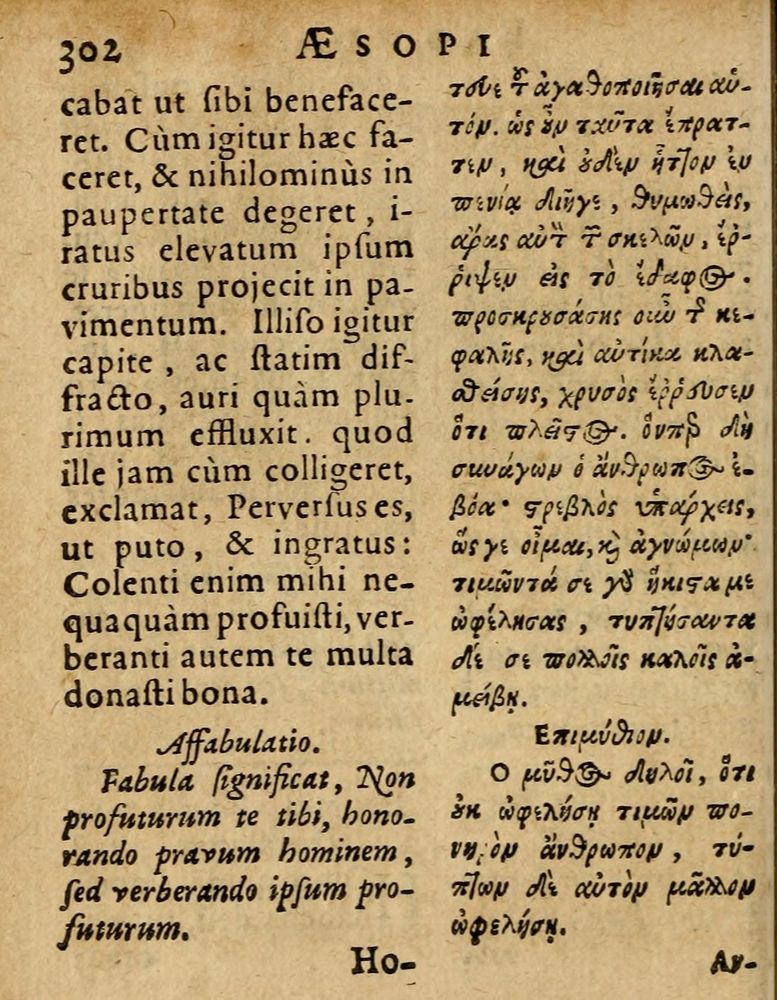 302 ÆSOPI
cabat ut ſibi beneface-
ret. Cùm igitur hæc fa-
ceret, & nihilominùs in
paupertate degeret, i-
ratus elevatum ipſum
cruribus projecit in pa-
vimentum. Illiſo igitur
capite, ac ſtatim dif-
fracto, auri quàm plu-
rimum effluxit. quod
ille jam cùm colligeret,
exclamat, Perverſus es,
ut puto, & ingratus:
Colenti enim mihi ne-
quaquàm profuiſti, ver-
beranti autem te multa
donaſti bona.
Affabulatio.
Fabula ſignificat, Non
profuturum te tibi, hono-
rando pravum hominem,
ſed verberando ipſum pro-
futurum.
Ho-
τον τοῦ ἀγαθοποιῆσαι αὐ-
τόν. ὡς οὖν ταῦτα ἔπρατ-
τεν, καὶ οὐδὲν ἧττον ἐν
πενίᾳ διῆγε, θυμωθεὶς,
ἄρας αὐτὸν τῶν σκελῶν, ἔρ-
ῥιψεν εἰς τὸ ἔδαφος.
προσκρουσάσης οὖν τῆς κε-
φαλῆς, καὶ αὐτίκα κλα-
σθείσης, χρυσὸς ἐῤῥευσεν
ὅτι πλεῖστος. ὅνπερ δὴ
συνάγων ὁ ἄνθρωπος ἐ-
βόα· στρεβλὸς ὑπάρχεις,
ὥς γε οἶμαι, καὶ ἀγνώμων·
τιμῶντά σε γὸ ἥκιστα με
ὠφέλησας, τυπτήσαντα
δέ σε πολλοῖς καλοῖς ἀ-
μείβῃ.
Επιμύθιον.
Ο μῦθος δηλοῖ, ὅτι
οὐκ ὠφελήσῃ τιμῶν πο-
νηρὸν ἄνθρωπον, τύ-
πτων δὲ αὐτὸν μᾶλλον
ὠφελήσῃ.
Αν-